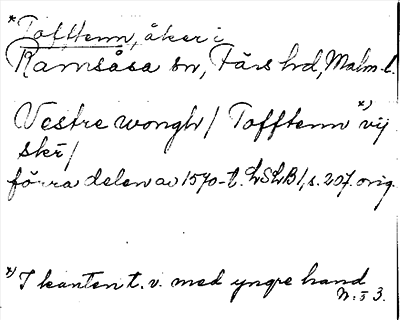 *Tofftenn, åker i
Ramsåsa sn, Färs hrd, Malm. l.
Vestre wongh / Tofftenn *) vij
skr /
förra delen av 1570-t. LSLB 1, s. 207. orig.
*) I kanten t. v. med yngre hand
N: I 3.